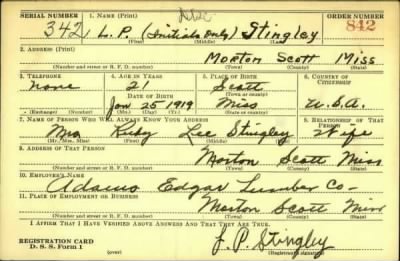 SERIAL NUMBER 1. NAME (Print) ORDER NUMBER
342 L.P. (Initials Only) Stingley 842
(First) (Middle) (Last)
2. ADDRESS (Print)
Morton Scott Miss
(Number and street or R. F. D. number) (Town) (County) (State)
3. TELEPHONE 4. AGE IN YEARS 5. PLACE OF BIRTH 6. COUNTRY OF CITIZENSHIP
none 21 Scott
DATE OF BIRTH (Town or county)
Jan 25 1919 Miss U.S.A.
(Exchange) (Number) (Mo.) (Day) (Yr.) (State or country)
7. NAME OF PERSON WHO WILL ALWAYS KNOW YOUR ADDRESS 8. RELATIONSHIP OF THAT PERSON
Mrs Ruby Lee Stingley Wife
(Mr., Mrs., Miss) (First) (Middle) (Last)
9. ADDRESS OF THAT PERSON
Morton Scott Miss
(Number and street or R. F. D. number) (Town) (County) (State)
10. EMPLOYER'S NAME
Adams Edgar Lumber Co-
11. PLACE OF EMPLOYMENT OR BUSINESS
Morton Scott Miss
(Number and street or R. F. D. number) (Town) (County) (State)
I AFFIRM THAT I HAVE VERIFIED ABOVE ANSWERS AND THAT THEY ARE TRUE.
REGISTRATION CARD
D. S. S. Form 1 L. P. Stingley
(Registrant's signature)